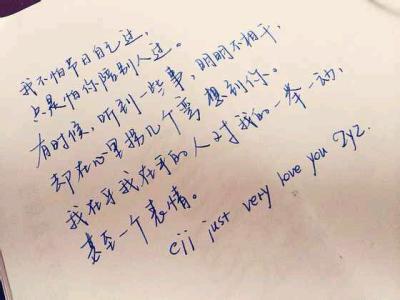 我不怕节日自己过，
只是怕你陪别人过。
有时候，听到一些事，明明不相干，
却在心里拐几个弯想到你。
我在乎我在乎的人对我的一举一动，
甚至一个表情。
cjj just very love you Zyz.